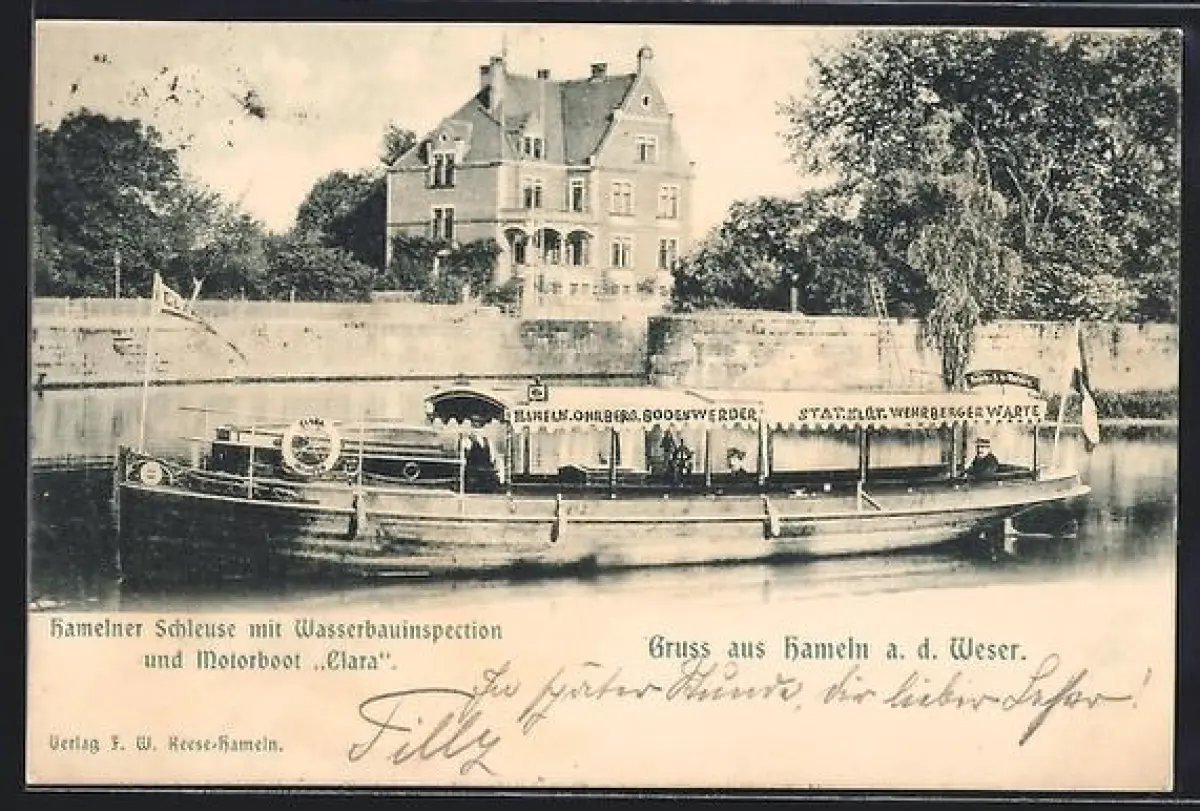 HAMELN. OHRBERG. BODENWERDER
STAT. FLGT. WEHRBERGER WARTE
Hamelner Schleuse mit Wasserbauinspection
und Motorboot „Clara“.
Gruss aus Hameln a. d. Weser.
In später Stunde, dir lieber
Tilly
Verlag F. W. Reese-Hameln.